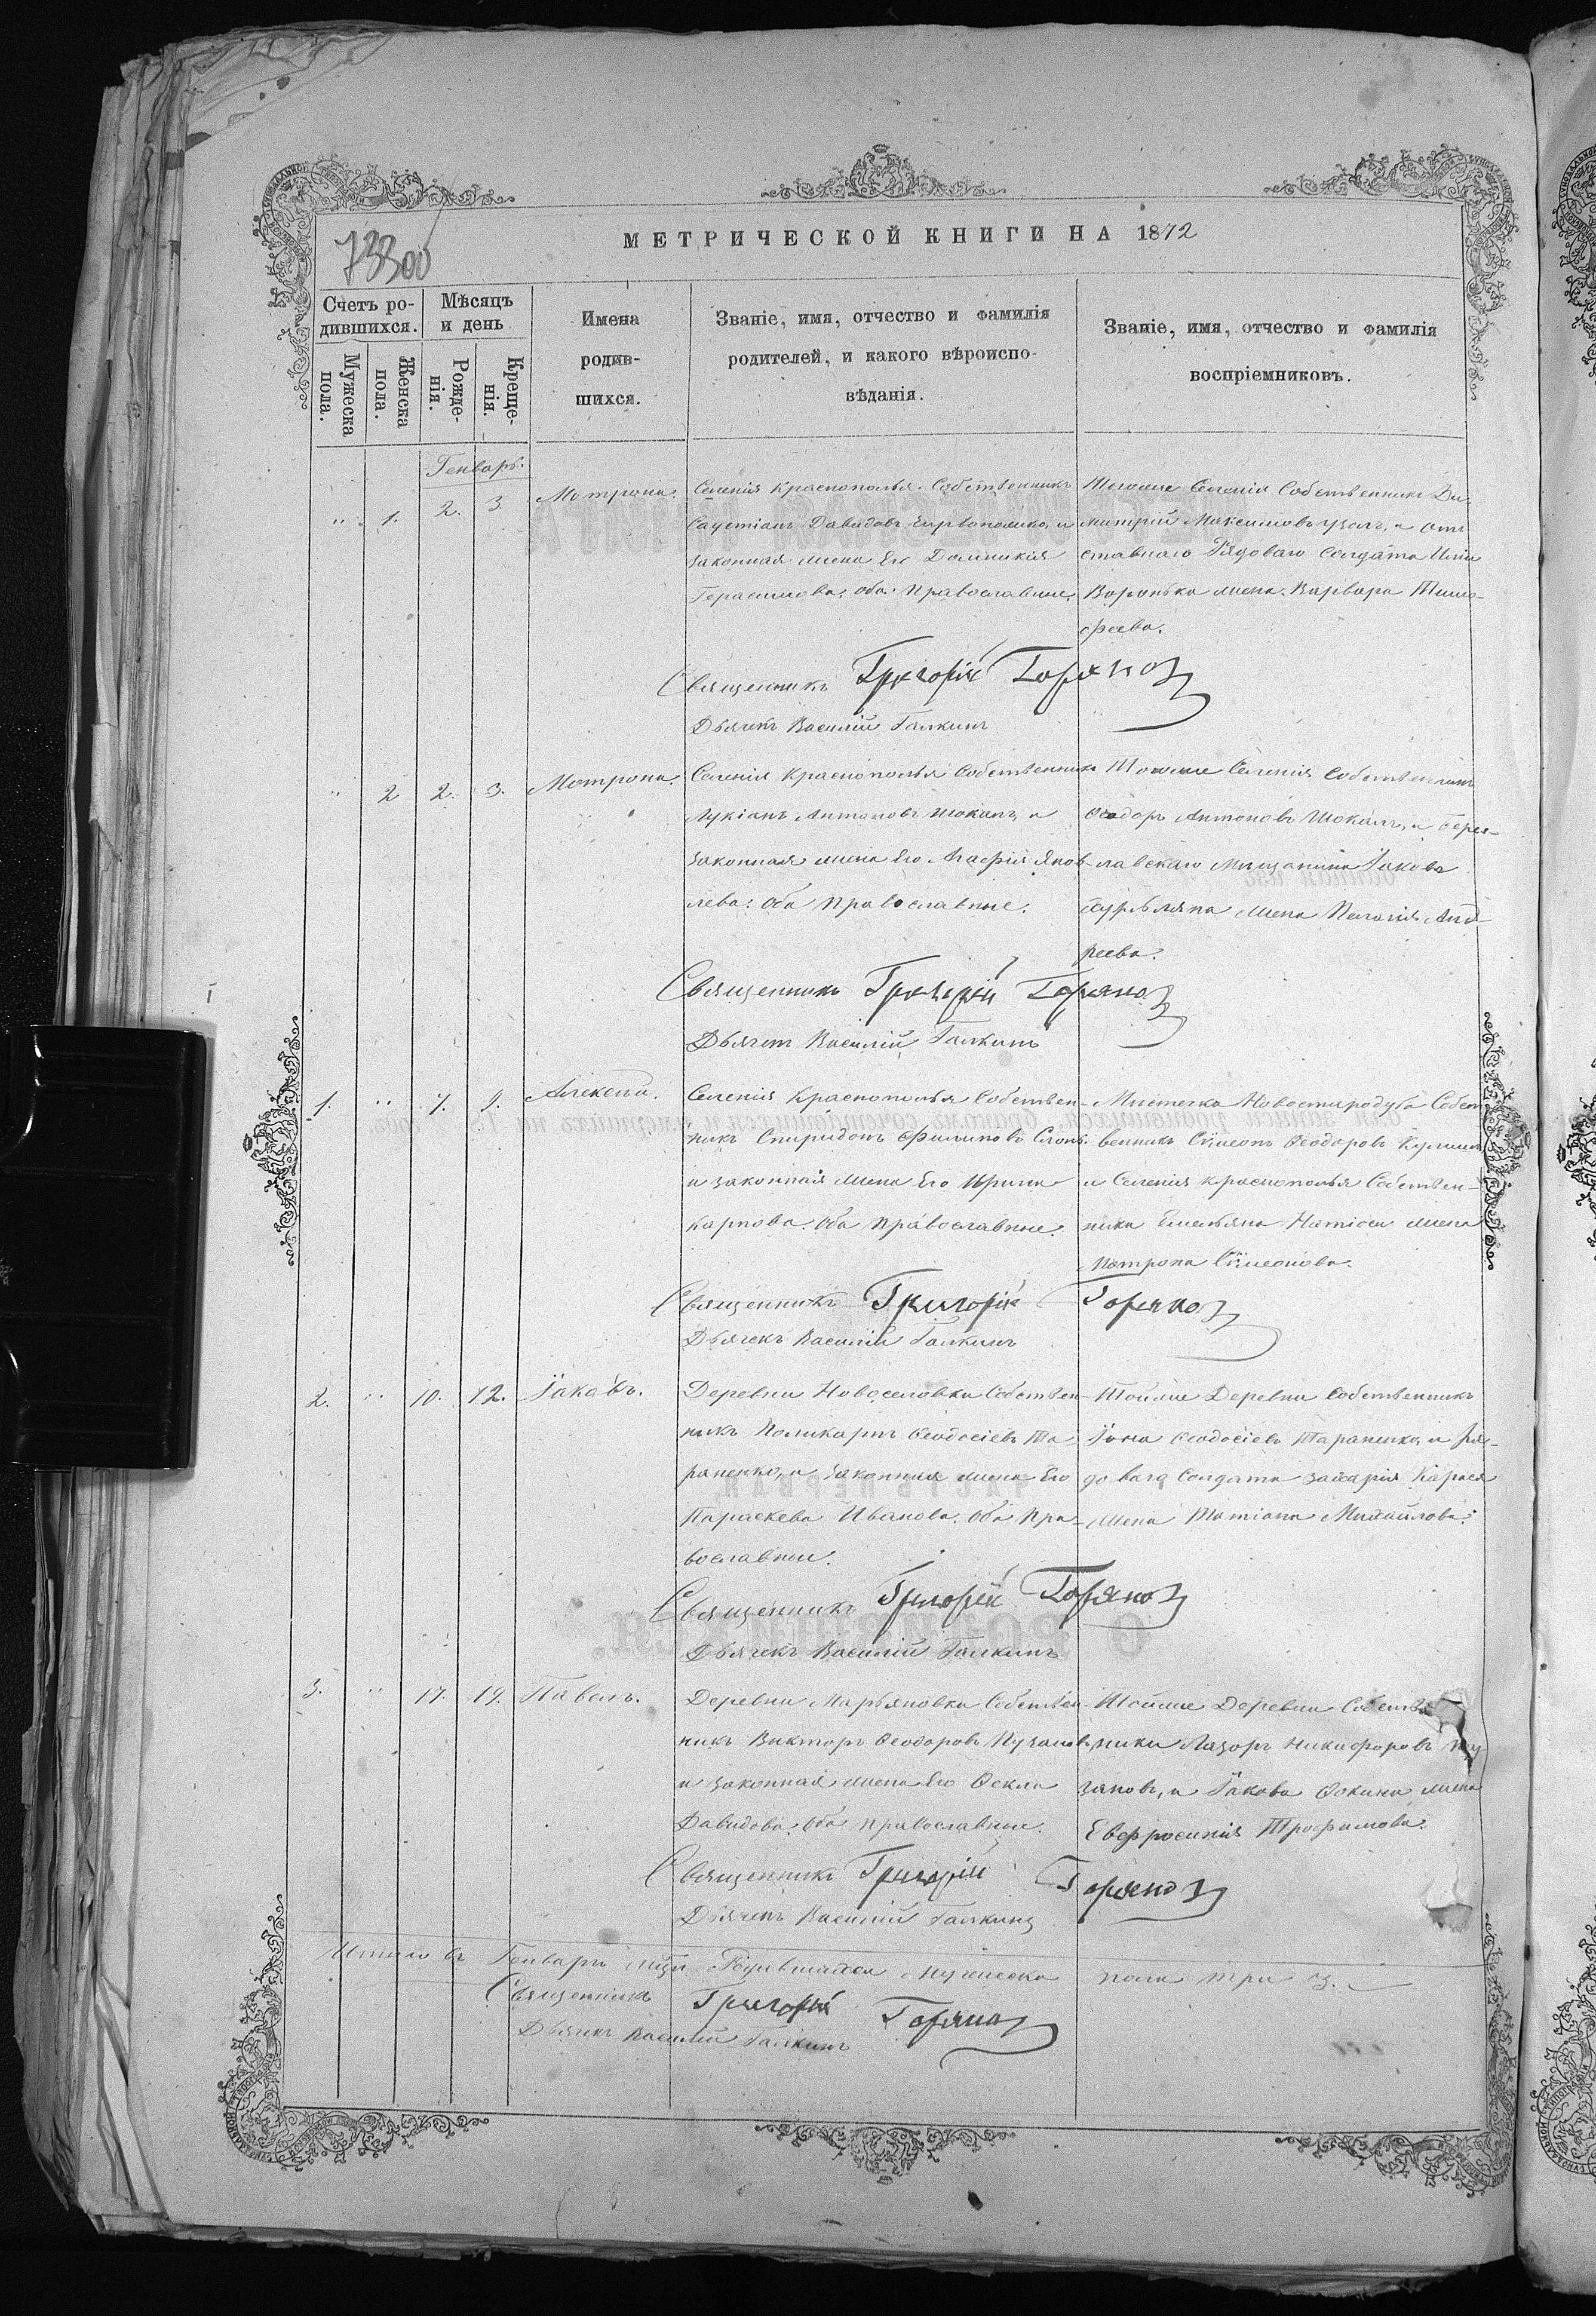 МЕТРИЧЕСКОЙ КНИГИ НА 1872
Счетъ ро-
дившихся.
Мѣсяцъ
и день
Имена
родив-
шихся.
Званіе, имя, отчество и фамилія
родителей, и какого вѣроиспо-
вѣданія.
Званіе, имя, отчество и фамилія
воспріемниковъ.
Мужеска
пола.
Женска
пола.
Рожде-
нія.
Креще-
нія.
Генварь.
" 1. 2. 3. Мотрона.
Селенія Краснополья Собственникъ
Давидовъ и
законная жена Его Домникія
Герасимова, оба Православные.
Тогоже Селенія Собственникъ Ди-
митрій Максимовъ Узолъ, и от-
ставнаго Рядоваго Солдата
Воронька жена Варвара Тимо-
фѣева.
Священникъ Григорій Горяновъ
Дьячекъ Василій Галкинъ
" 2 2. 3. Мотрона.
Селенія Краснополья Собственникъ
Лукіанъ Антоновъ Шокалъ, и
законная жена Его Агафія Яков-
лева: Оба Православные.
Тогоже Селенія Собственникъ
Ѳеодоръ Антоновъ Шокалъ, и Берез-
лавскаго Мѣщанина Іакова
жена Пелагія Анд-
реева.
Священникъ Григорій Горяновъ
Дьячекъ Василій Галкинъ
1. " 7. 9. Алексѣй.
Селенія Краснополья Собствен-
никъ Спиридонъ Филиповъ
и законная жена Его Ирина
Карпова. Оба православные.
Мистечка Новостародуба Собст-
венникъ Сѵмеонъ Ѳеодоровъ
и Селенія Краснополья Собствен-
ника Емельяна жена
Мотрона Сѵмеонова.
Священникъ Григорій Горяновъ
Дьячекъ Василій Галкинъ
2. " 10. 12. Іаковъ.
Деревни Новоселовки Собствен-
никъ Поликарпъ Ѳеодосіевъ Та-
раненко, и законная жена Его
Параскева Иванова. Оба Пра-
вославные.
Тойже Деревни Собственникъ
Іона Ѳеодосіевъ Тараненко, и Ря-
доваго Солдата Захарія Карася
жена Татіана Михайлова:
Священникъ Григорій Горяновъ
Дьячекъ Василій Галкинъ
3. " 17. 19. Павелъ.
Деревни Марьяновки Собствен-
никъ Викторъ Ѳеодоровъ Пузановъ
и законная жена Его Ѳекла
Давидова. Оба православные.
Тойже Деревни Собствен-
ники Лазоръ Никифоровъ Пу-
зановъ, и Іакова Ѳокина жена
Евфросинія Трофимова.
Священникъ Григорій Горяновъ
Дьячекъ Василій Галкинъ
Итого въ Генварѣ мцѣ Родившихся Мужеска пола три 3.
Священникъ Григорій Горяновъ
Дьячекъ Василій Галкинъ